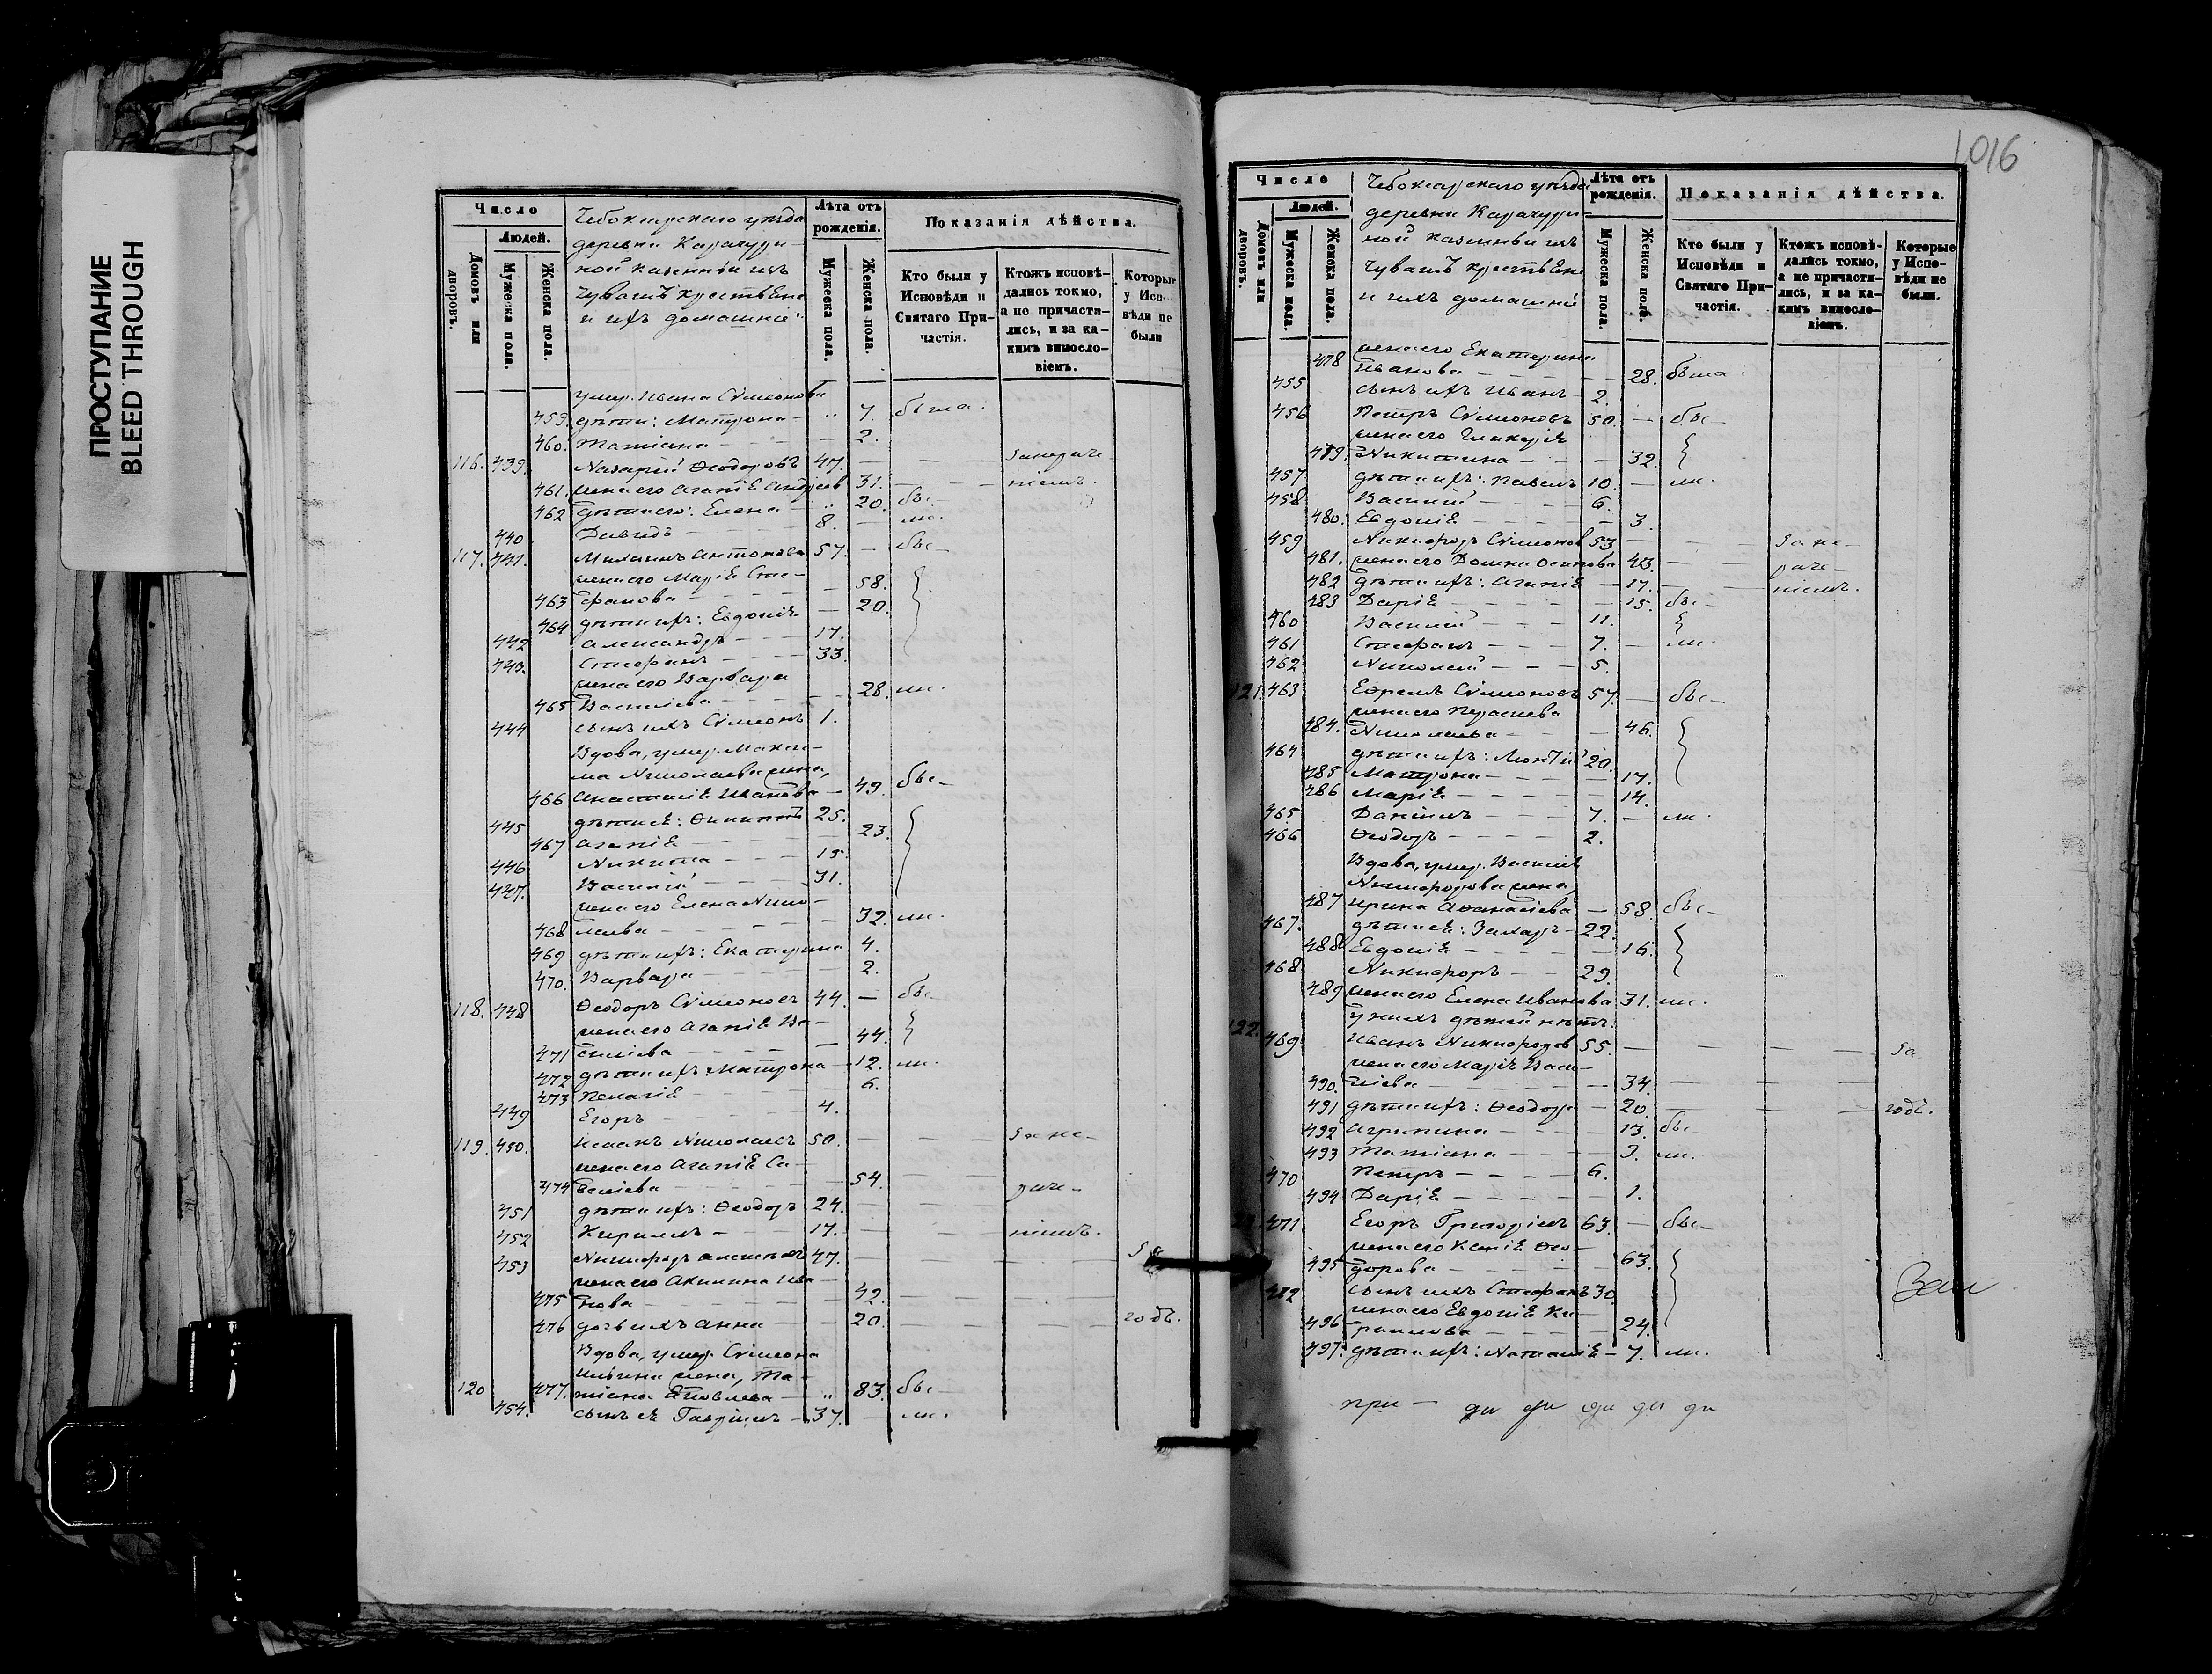 ПРОСТУПАНИЕ
BLEED THROUGH
Число
Людей.
Домовъ или дворовъ.
Мужеска пола.
Женска пола.
Чебоксарскаго уѣзда
деревни Карачури-
ной казенныи изъ
Чувашъ крестьяне
и ихъ домашніи
Лѣта отъ рожденія.
Мужеска пола.
Женска пола.
Показанія дѣйства.
Кто были у Исповѣди и Святаго Причастія.
Ктожъ исповѣдались токмо, а не причастились, и за какимъ винословіемъ.
Которые у Исповѣди не были
умер. Ивана Сѵмеонова
459. дѣти: Матрона — „ 7. была:
460. Татіана — — 2.
116. 439. Назарій Ѳеодоровъ 47. — — занераче-
461. жена его Агапія Андреев 31. — — ніемъ.
462 дѣти его: Елена — „ 20. бы-
440 Давидъ — 8. — ли.
117. 441. Михаилъ Антоновъ 57. — бы-
жена его Марія Сте-
463 фанова — — 58.
464 дѣти ихъ: Евдокія — 20.
442 Александръ — — 17.
443. Стефанъ — — 33.
жена его Варвара
465 Васильева — — 28. ли.
444 сынъ ихъ Сѵмеонъ 1.
Вдова, умер. Макси-
ма Николаева жена,
466 Анастасія Иванова — 49. бы-
445 дѣти ея: Филиппъ 25.
467 Агапія — — 23.
446 Никита — — 15.
447. Василій — — 31.
жена его Елена Нико-
468 лаева — — 32. ли.
469 дѣти ихъ: Екатерина 4.
470. Варвара — — 2.
118. 448 Ѳеодоръ Сѵмеоновъ 44. — бы-
жена его Агапія Ва-
471 сильева — — 44.
472 дѣти ихъ Матрона — 12. ли.
473 Пелагія — — 6.
449 Егоръ — — 4.
119. 450. Исаакъ Николаевъ 50. — — за не-
жена его Агапія Са-
474 велiева — — 54. — раче-
451 дѣти ихъ: Ѳеодоръ 24. —
452 Кириллъ — 17. — — ніемъ.
453 Никифоръ Алексѣевъ 47. — — — За
жена его Акилина Ива-
475 нова — — 42. — —
476 дочь ихъ Анна — — 20. — — — годъ.
Вдова, умер. Сѵмеона
Ильина жена, Та-
120 477. тіана Яковлева — „ 83. бы-
454. сынъ ея Гавріилъ — 37. — ли.
1016
Число
Людей.
Домовъ или дворовъ.
Мужеска пола.
Женска пола.
Чебоксарскаго уѣзда
деревни Карачури-
ной казенныи изъ
Чувашъ крестьяне
и ихъ домашніи
Лѣта отъ рожденія.
Мужеска пола.
Женска пола.
Показанія дѣйства.
Кто были у Исповѣди и Святаго Причастія.
Ктожъ исповѣдались токмо, а не причастились, и за какимъ винословіемъ.
Которые у Исповѣди не были.
жена его Екатерина
478 Иванова — — 28. была.
455 сынъ ихъ Иванъ — 2.
456 Петръ Сѵмеоновъ 50. — бы-
жена его Гликерія
479. Никитина — — 32.
457 дѣти ихъ: Павелъ 10. — ли.
458 Василій — — 6.
480. Евдокія — — 3.
459 Никифоръ Сѵмеонов 53 — — за не-
481. жена его Домна Осипова 43. — — раче-
482 дѣти ихъ: Агапія — 17. — — ніемъ.
483 Дарія — — 15. бы-
460 Василій — — 11.
461 Стефанъ — — 7. — ли
462 Николай — — 5.
121. 463 Ефремъ Сѵмеоновъ 57. — бы-
жена его Параскева
484. Николаева — — 46.
464 дѣти ихъ: Моѵсій 20.
485 Матрона — — 17.
486 Марія — — 14.
465. Даніилъ — — 7. — ли.
466 Ѳеодоръ — — 2.
Вдова, умер. Василія
Никифорова жена,
487 Ирина Аѳанасіева — 58. бы-
467. дѣти ея: Захаръ — 22.
488 Евдокія — — 16.
468 Никифоръ — — 29.
489 жена его Елена Иванова 31. ли.
у нихъ дѣтей нѣтъ.
122. 469 Иванъ Никифоров 55. — — — За
жена его Марія Васи-
490. ліева — — 34. — —
491 дѣти ихъ: Ѳеодора — 20. — — — годъ.
492 Агрипина — — 13. бы-
493 Татіана — — 9. ли.
470 Петръ — — 6.
494 Дарія — — 1.
471 Егоръ Григоріевъ 63. — бы-
жена его Ксенія Ѳео-
495 дорова — — 63.
472 сынъ ихъ Стефанъ 30.
жена его Евдокія Ки-
496 рилова — — 24.
497. дѣти ихъ: Наталія — 7. ли.